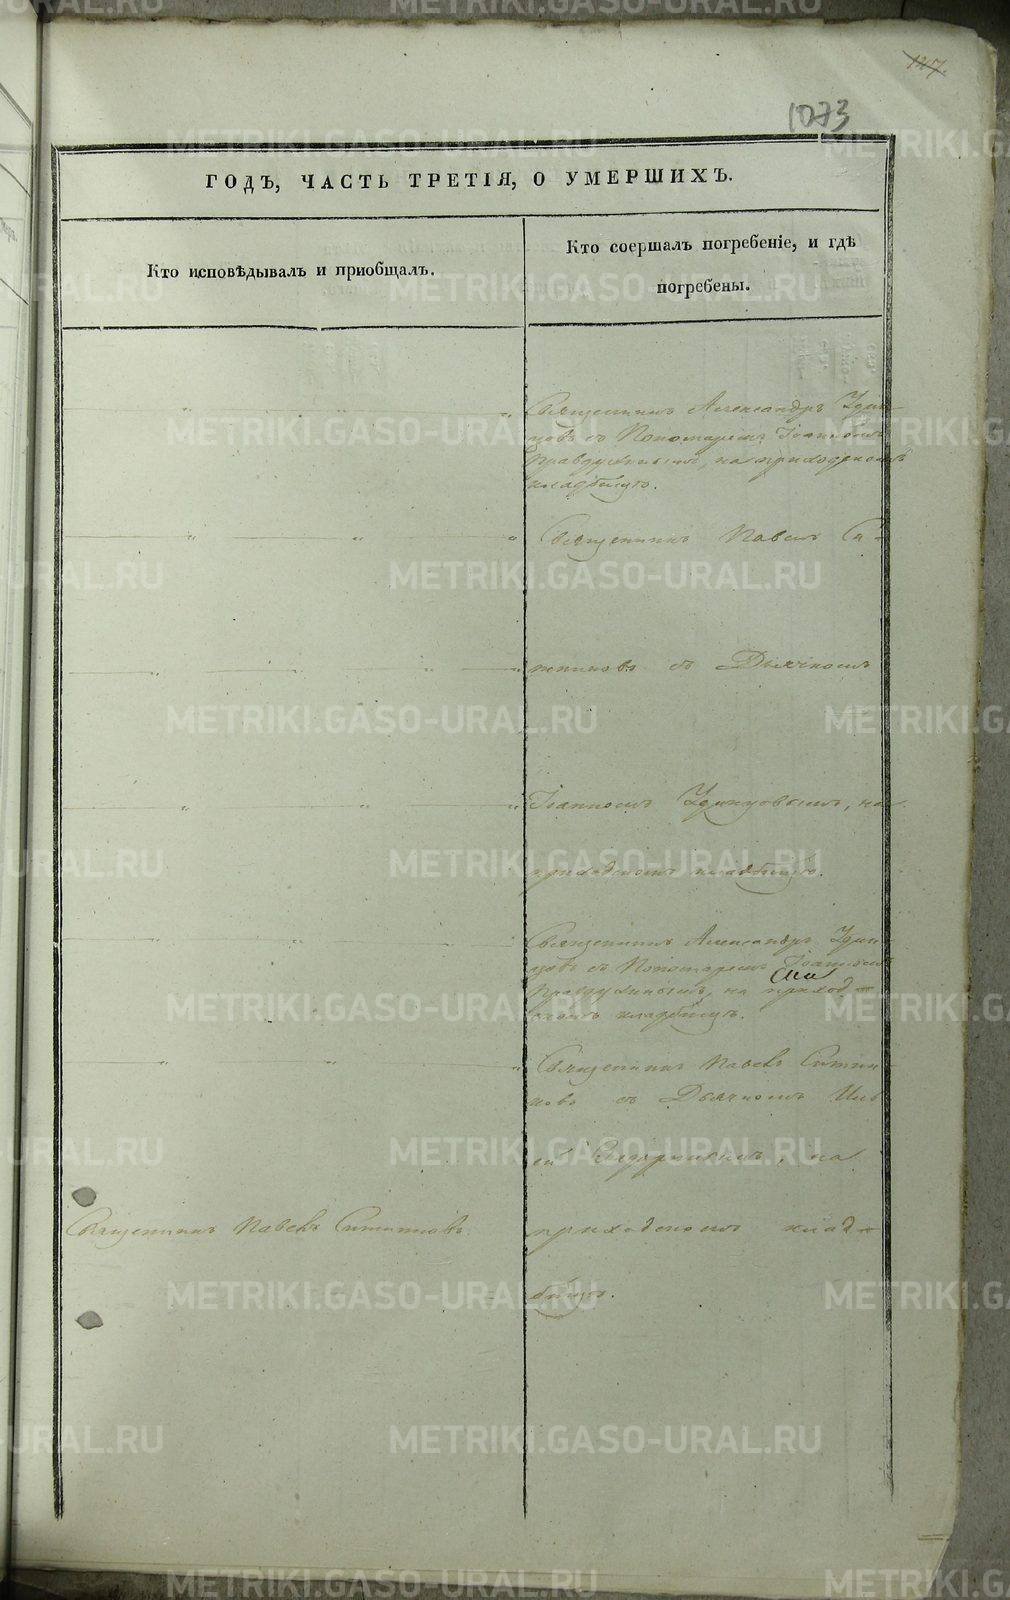 147.
1073
ГОДЪ, ЧАСТЬ ТРЕТІЯ, О УМЕРШИХЪ.
Кто исповѣдывалъ и приобщалъ.
Кто соершалъ погребеніе, и гдѣ
погребены.
Священникъ Александръ Удин-
цовъ съ Пономаремъ Іоанномъ
на приходскомъ
кладбищѣ.
Священникъ Павелъ Си-
тниковъ съ Дьячкомъ
Іоанномъ Удинцовымъ, на
приходскомъ кладбищѣ.
Священникъ Александръ Удин-
цовъ съ Пономаремъ Іоанномъ
на приход-
скомъ кладбищѣ.
Священникъ Павелъ Ситни-
ковъ съ Дьячкомъ
на
Священникъ Павелъ Ситниковъ
приходскомъ клад-
бищѣ.
METRIKI.GASO-URAL.RU